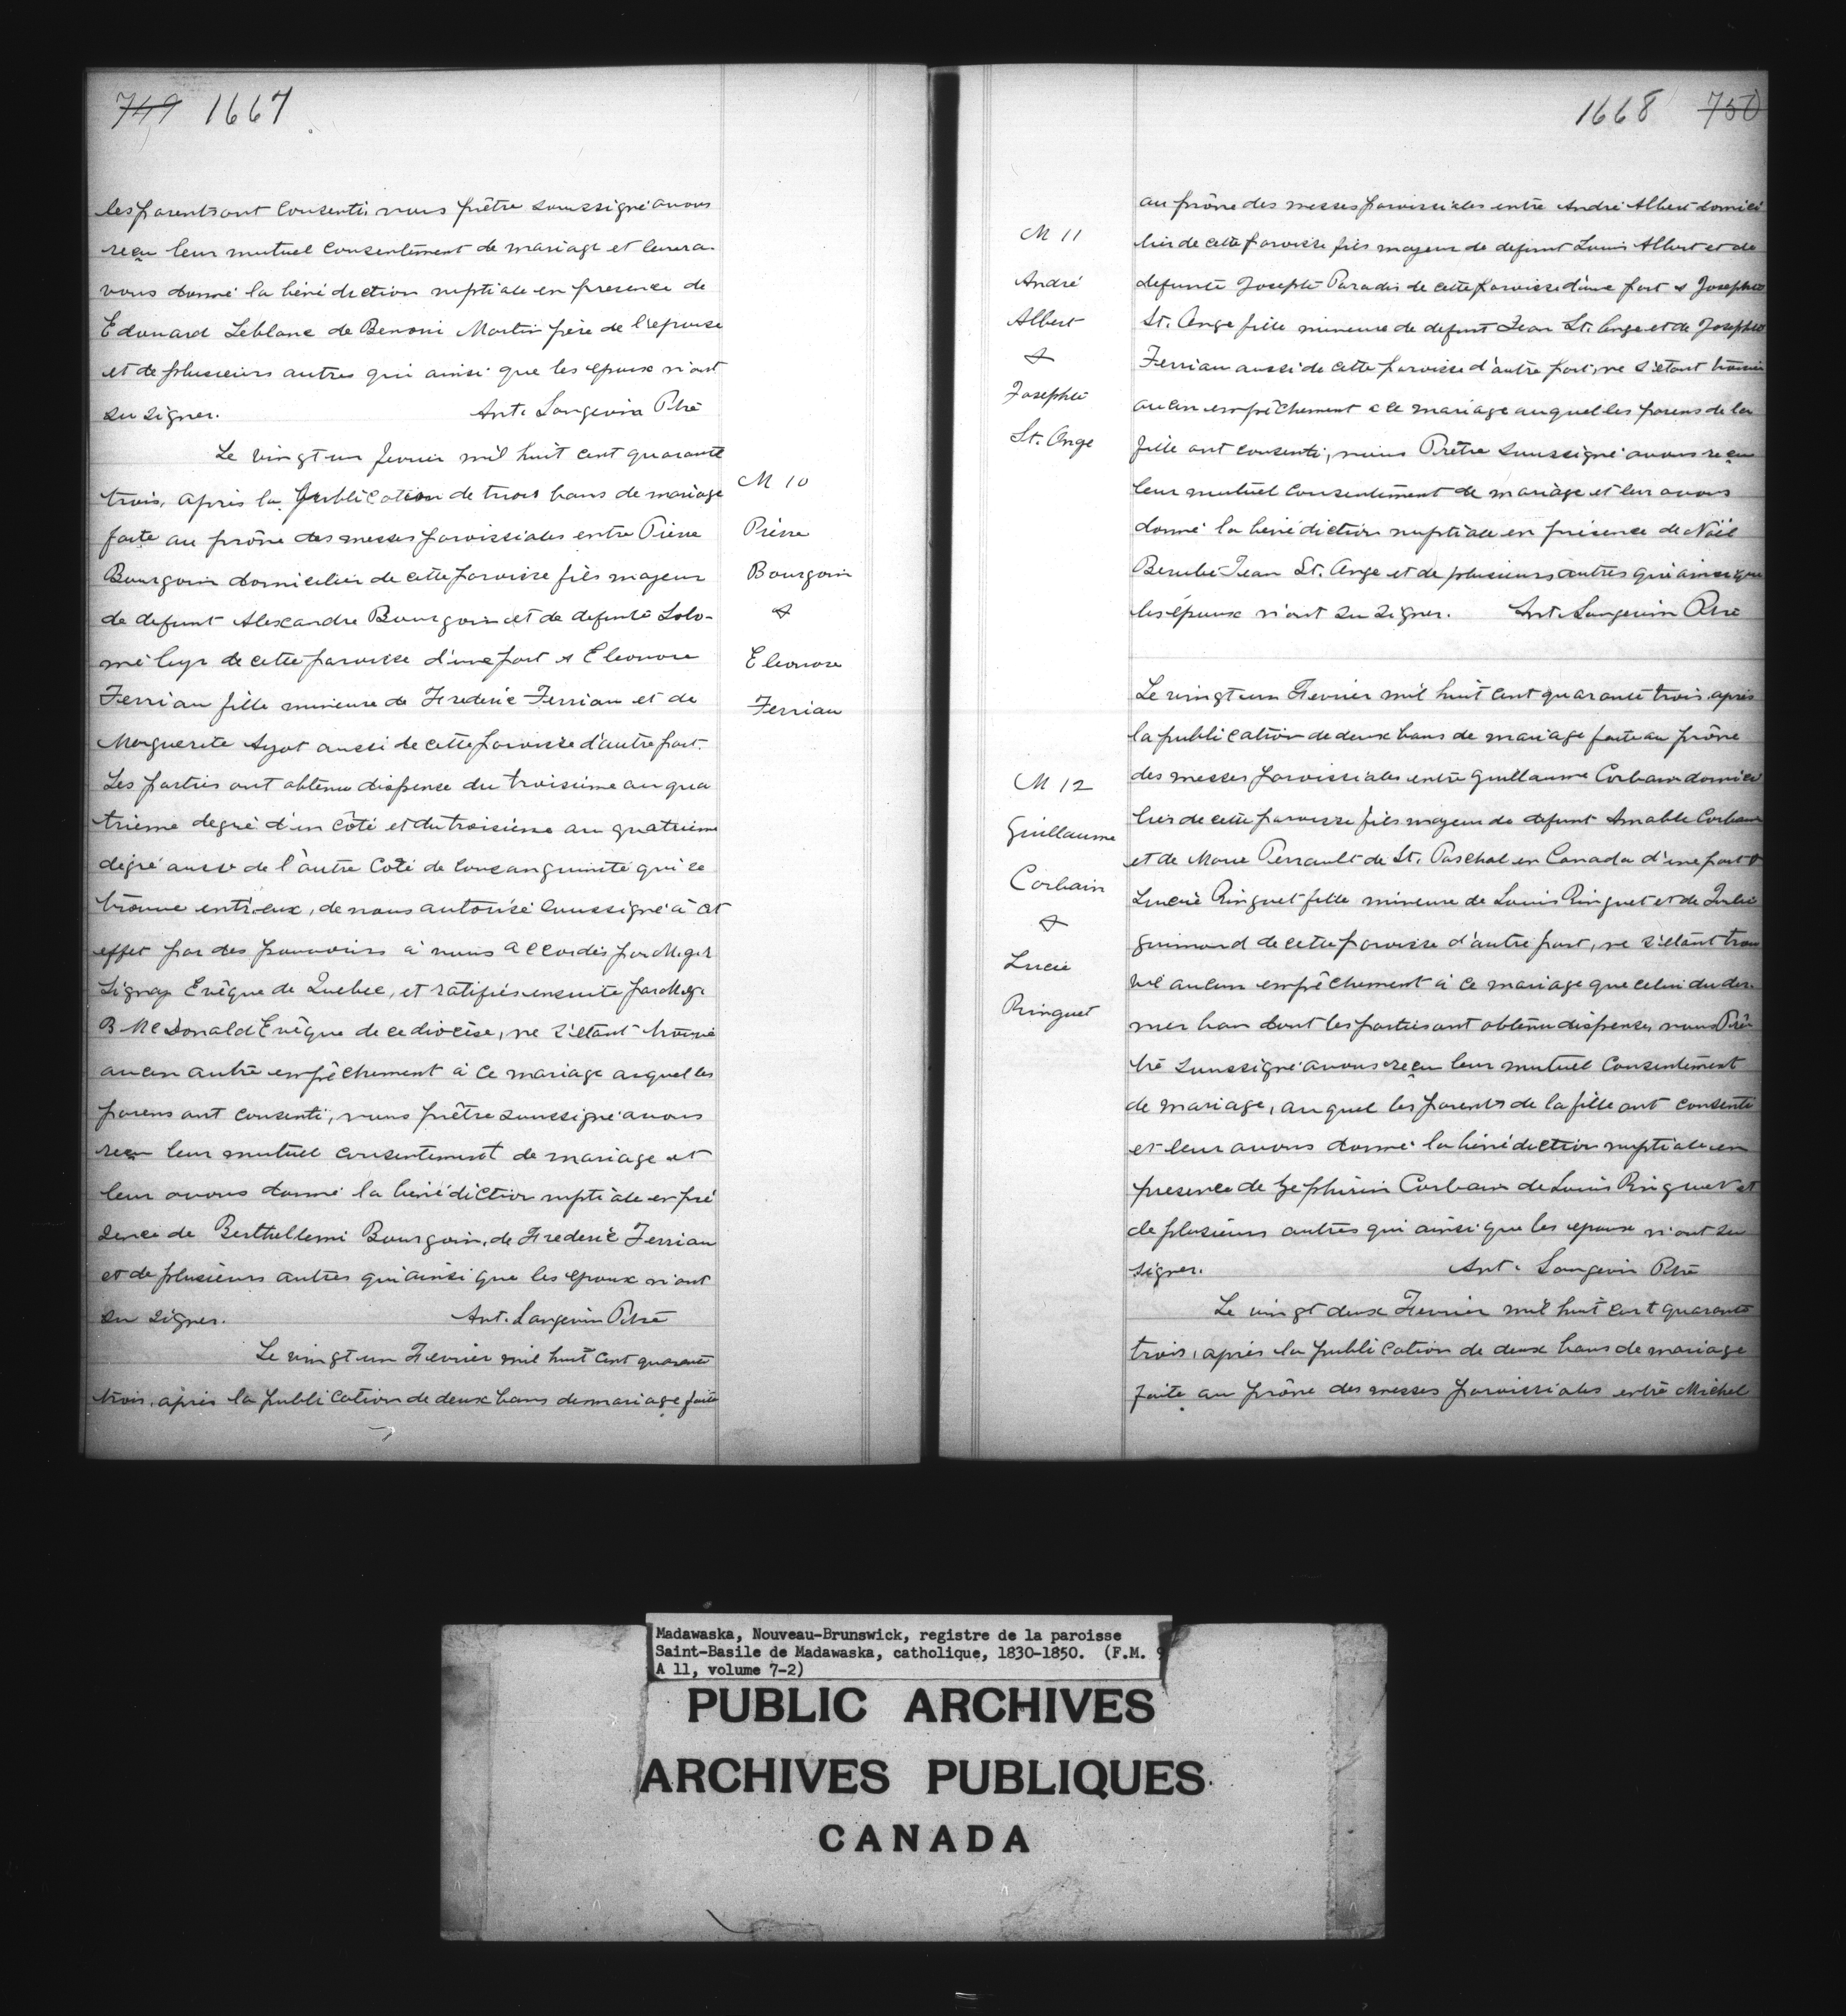 749 1667
les parents ont consenti nous prêtre soussigné avons
reçu leur mutuel consentement de mariage et leur a-
vons donné la bénédiction nuptiale en presence de
Edouard Leblanc de Benoni Martin père de l'epouse
et de plusieurs autres qui ainsi que les epoux n'ont
su signer. Ant. Langevin Ptre
Le vingt un fevrier mil huit cent quarante
trois, après la publication de trois bans de mariage
faite au prône des messes paroissiales entre Pierre
Bourgoin domicilier de cette paroisse fils majeur
de defunt Alexandre Bourgoin et de defunte Solo-
mé Cyr de cette paroisse d'une part & Eleonore
Ferrian fille mineure de Frederic Ferrian et de
Marguerite Ayot aussi de cette paroisse d'autre part.
Les parties ont obtenu dispense du troisieme au qua
trième degré d'un côté et du troisieme au quatrieme
degré aussi de l'autre côté de consanguinité qui se
trouve entr'eux, de nous autorisé soussigné à cet
effet par des pouvoirs à nous accordés par Msgr
Signay Evêque de Quebec, et ratifiés ensuite par Msgr
B McDonald Evêque de ce diocèse, ne s'étant trouvé
aucun autre empêchement à ce mariage auquel les
parens ont consenti, nous prêtre soussigné avons
reçu leur mutuel consentement de mariage et
leur avons donné la bénédiction nuptiale en pré
sence de Berthellemi Bourgoin, de Frederic Ferrian
et de plusieurs autres qui ainsi que les epoux n'ont
su signer. Ant. Langevin Ptre
Le vingt un Fevrier mil huit cent quarante
trois, après la publication de deux bans de mariage faite
M 10
Pierre
Bourgoin
&
Eleonore
Ferrian
1668 750
au prône des messes paroissiales entre André Albert domici
lier de cette paroisse fils majeur de defunt Louis Albert et de
defunte Josephte Paradis de cette paroisse d'une part & Josephte
St. Ange fille mineure de defunt Jean St. Ange et de Josephte
Ferrian aussi de cette paroisse d'autre part, ne s'étant trouvé
aucun empêchement a ce mariage auquel les parens de la
fille ont consenti, nous Prêtre soussigné avons reçu
leur mutuel consentement de mariage et leur avons
donné la bénédiction nuptiale en présence de Noël
Berubé Jean St. Ange et de plusieurs autres qui ainsi que
les époux n'ont su signer. Ant. Langevin Ptre
M 11
André
Albert
&
Josephte
St. Ange
Le vingt un Fevrier mil huit cent quarante trois après
la publication de deux bans de mariage faite au prône
des messes paroissiales entre Guillaume Corbain domici
lier de cette paroisse fils majeur de defunt Amable Corbain
et de Marie Perrault de St. Paschal en Canada d'une part &
Lucie Ringuet fille mineure de Louis Ringuet et de Julie
Guimond de cette paroisse d'autre part, ne s'étant trou
vé aucun empêchement à ce mariage que celui du der-
nier ban dont les parties ont obtenu dispense, nous Prê-
tre soussigné avons reçu leur mutuel consentement
de mariage, auquel les parents de la fille ont consenti
et leur avons donné la bénédiction nuptiale en
presence de Zephirin Corbain de Louis Ringuet et
de plusieurs autres qui ainsi que les epoux n'ont su
signer. Ant. Langevin Ptre
Le vingt deux Fevrier mil huit cent quarante
trois, après la publication de deux bans de mariage
faite au prône des messes paroissiales entre Michel
M 12
Guillaume
Corbain
&
Lucie
Ringuet
Madawaska, Nouveau-Brunswick, registre de la paroisse
Saint-Basile de Madawaska, catholique, 1830-1850. (F.M. 9
A 11, volume 7-2)
PUBLIC ARCHIVES
ARCHIVES PUBLIQUES
CANADA